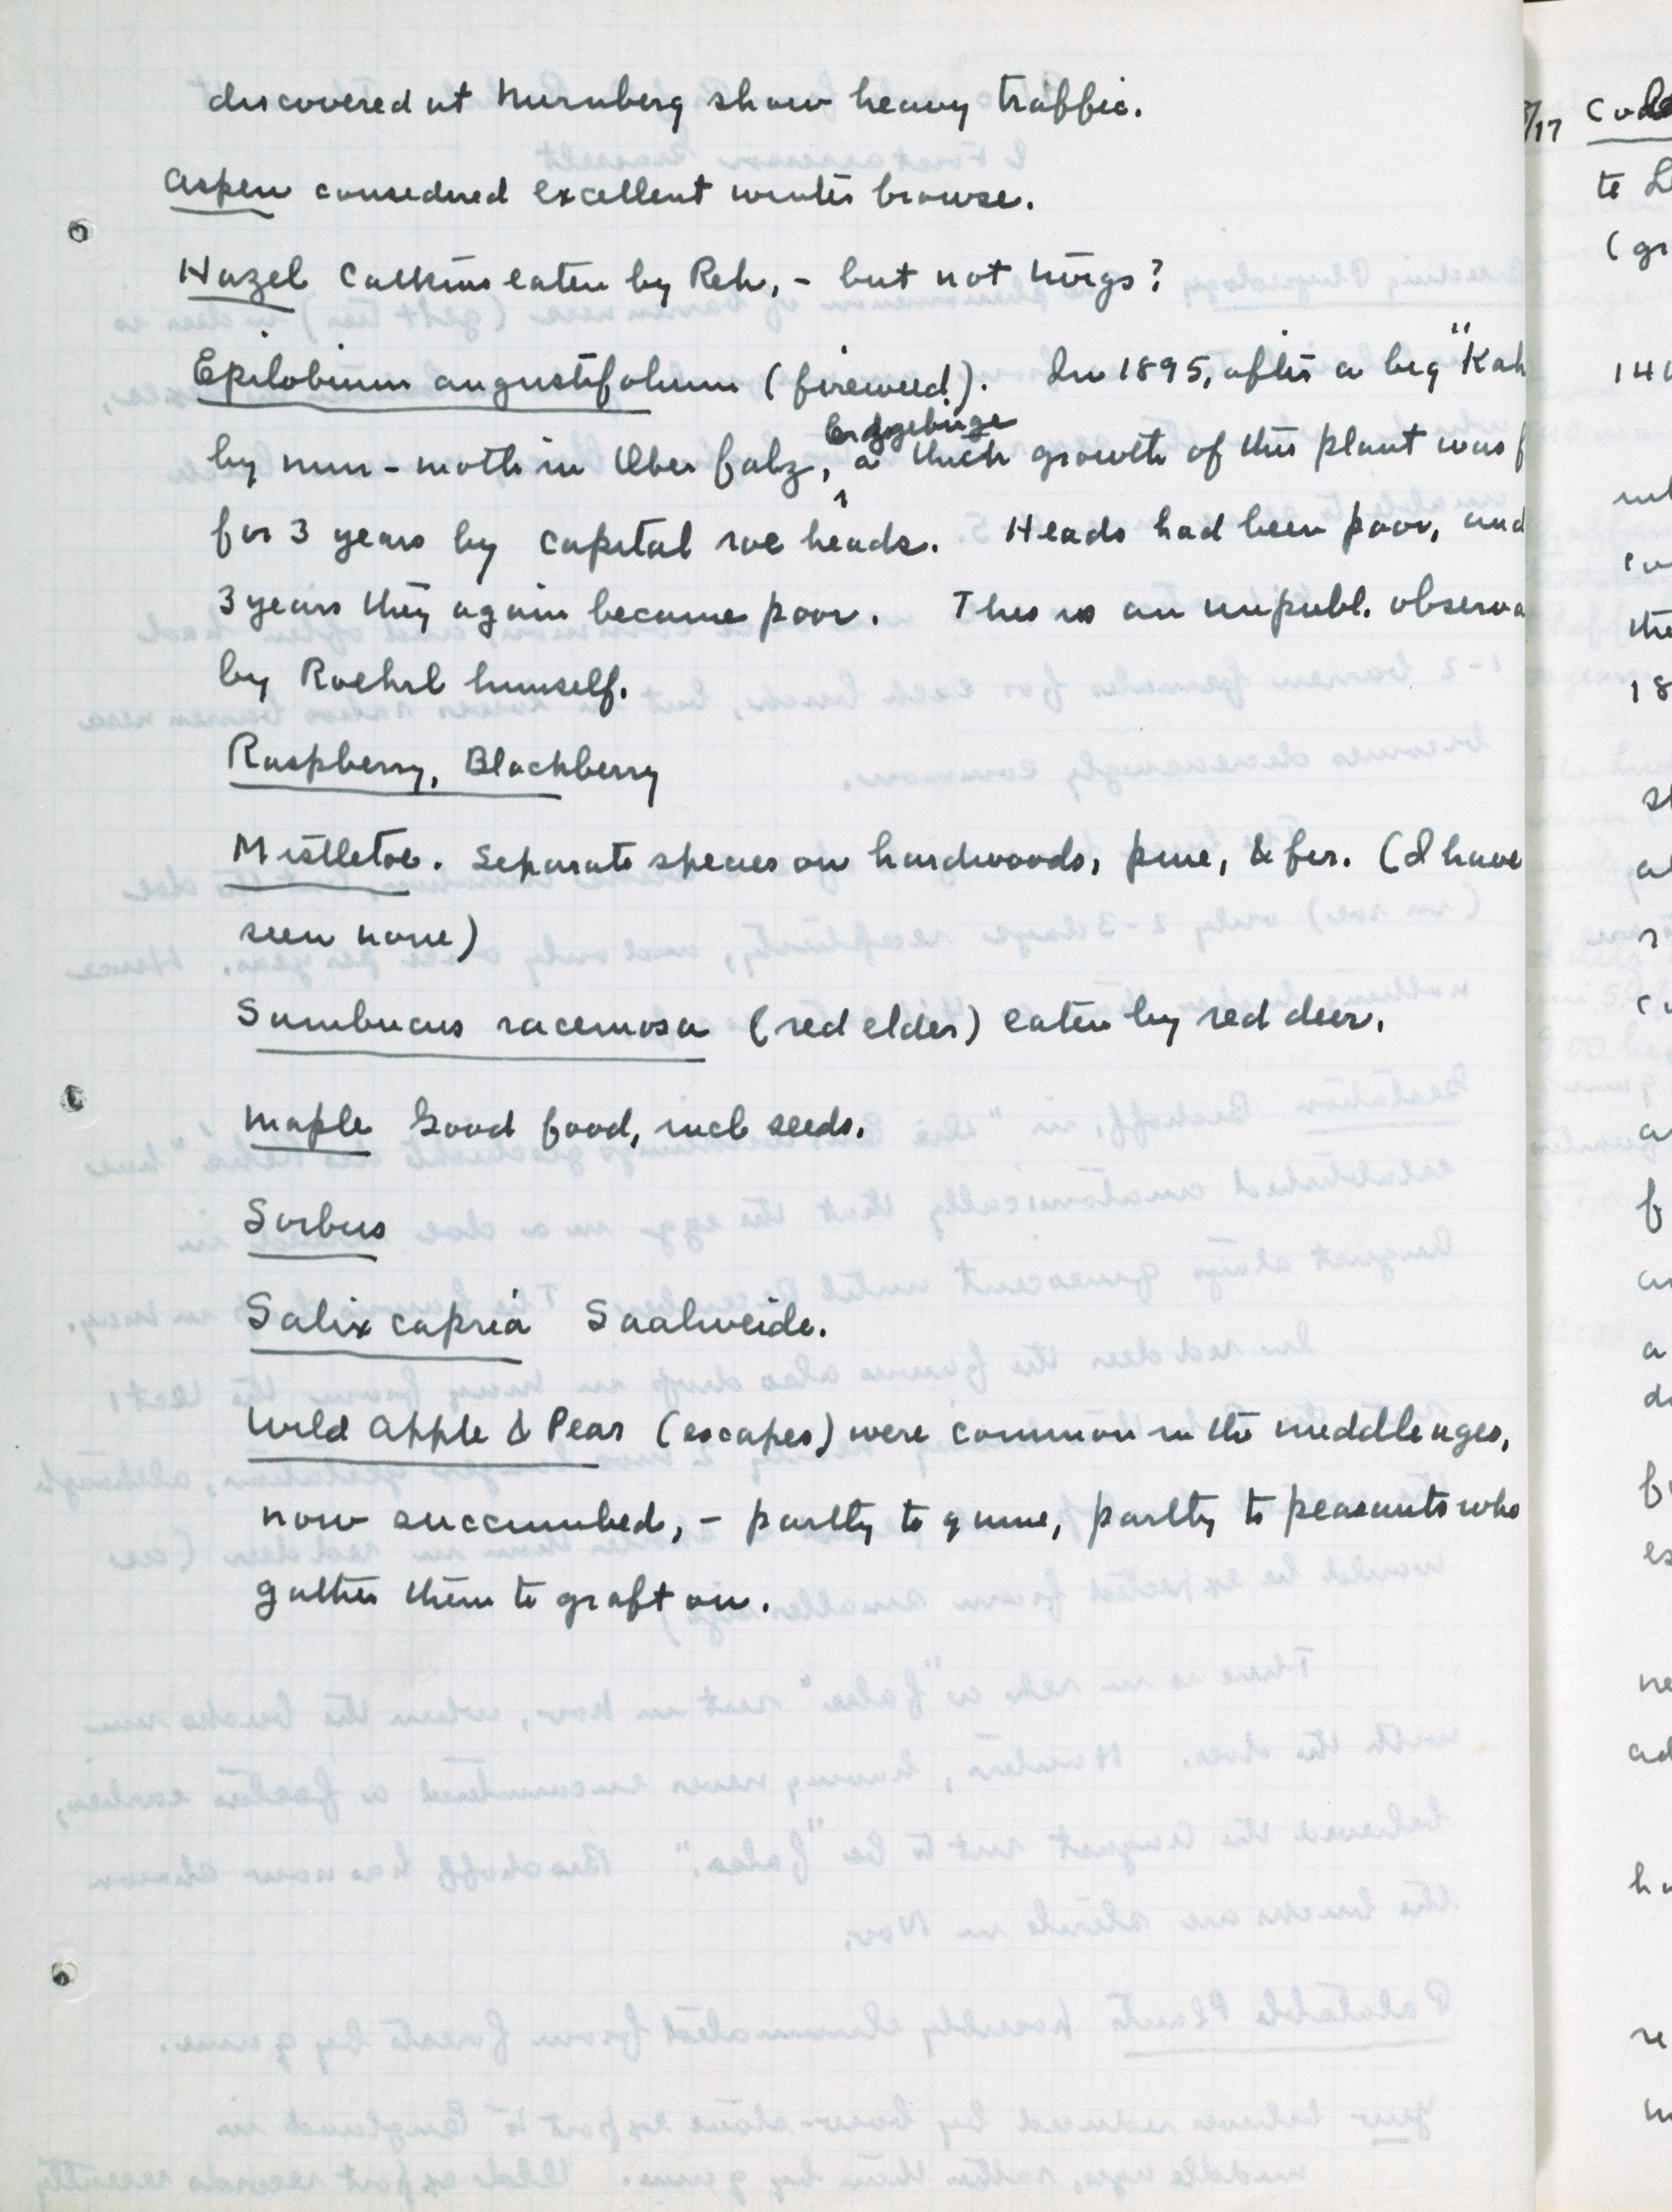 discovered at Nurnberg show heavy traffic.
Aspen considered excellent winter browse.
Hazel Catkins eaten by Reh, - but not twigs?
Epilobium angustifolium (fireweed). In 1895, after a big "Kah
by nun-moth in Ober falz, a thick growth of this plant was f
for 3 years by capital roe heads. Heads had been poor, and
3 years they again became poor. This is an unpubl. observa
by Roehrl himself.
Raspberry, Blackberry
Mistletoe. Separate species on hardwoods, pine, & fir. (I have
seen none)
Sambucus racemosa (red elder) eaten by red deer.
Maple Good food, incl seeds.
Sorbus
Salix capria Saalweide.
Wild Apple & Pear (escapes) were common in the middle ages,
now succumbed, - partly to game, partly to peasants who
gather them to graft on.